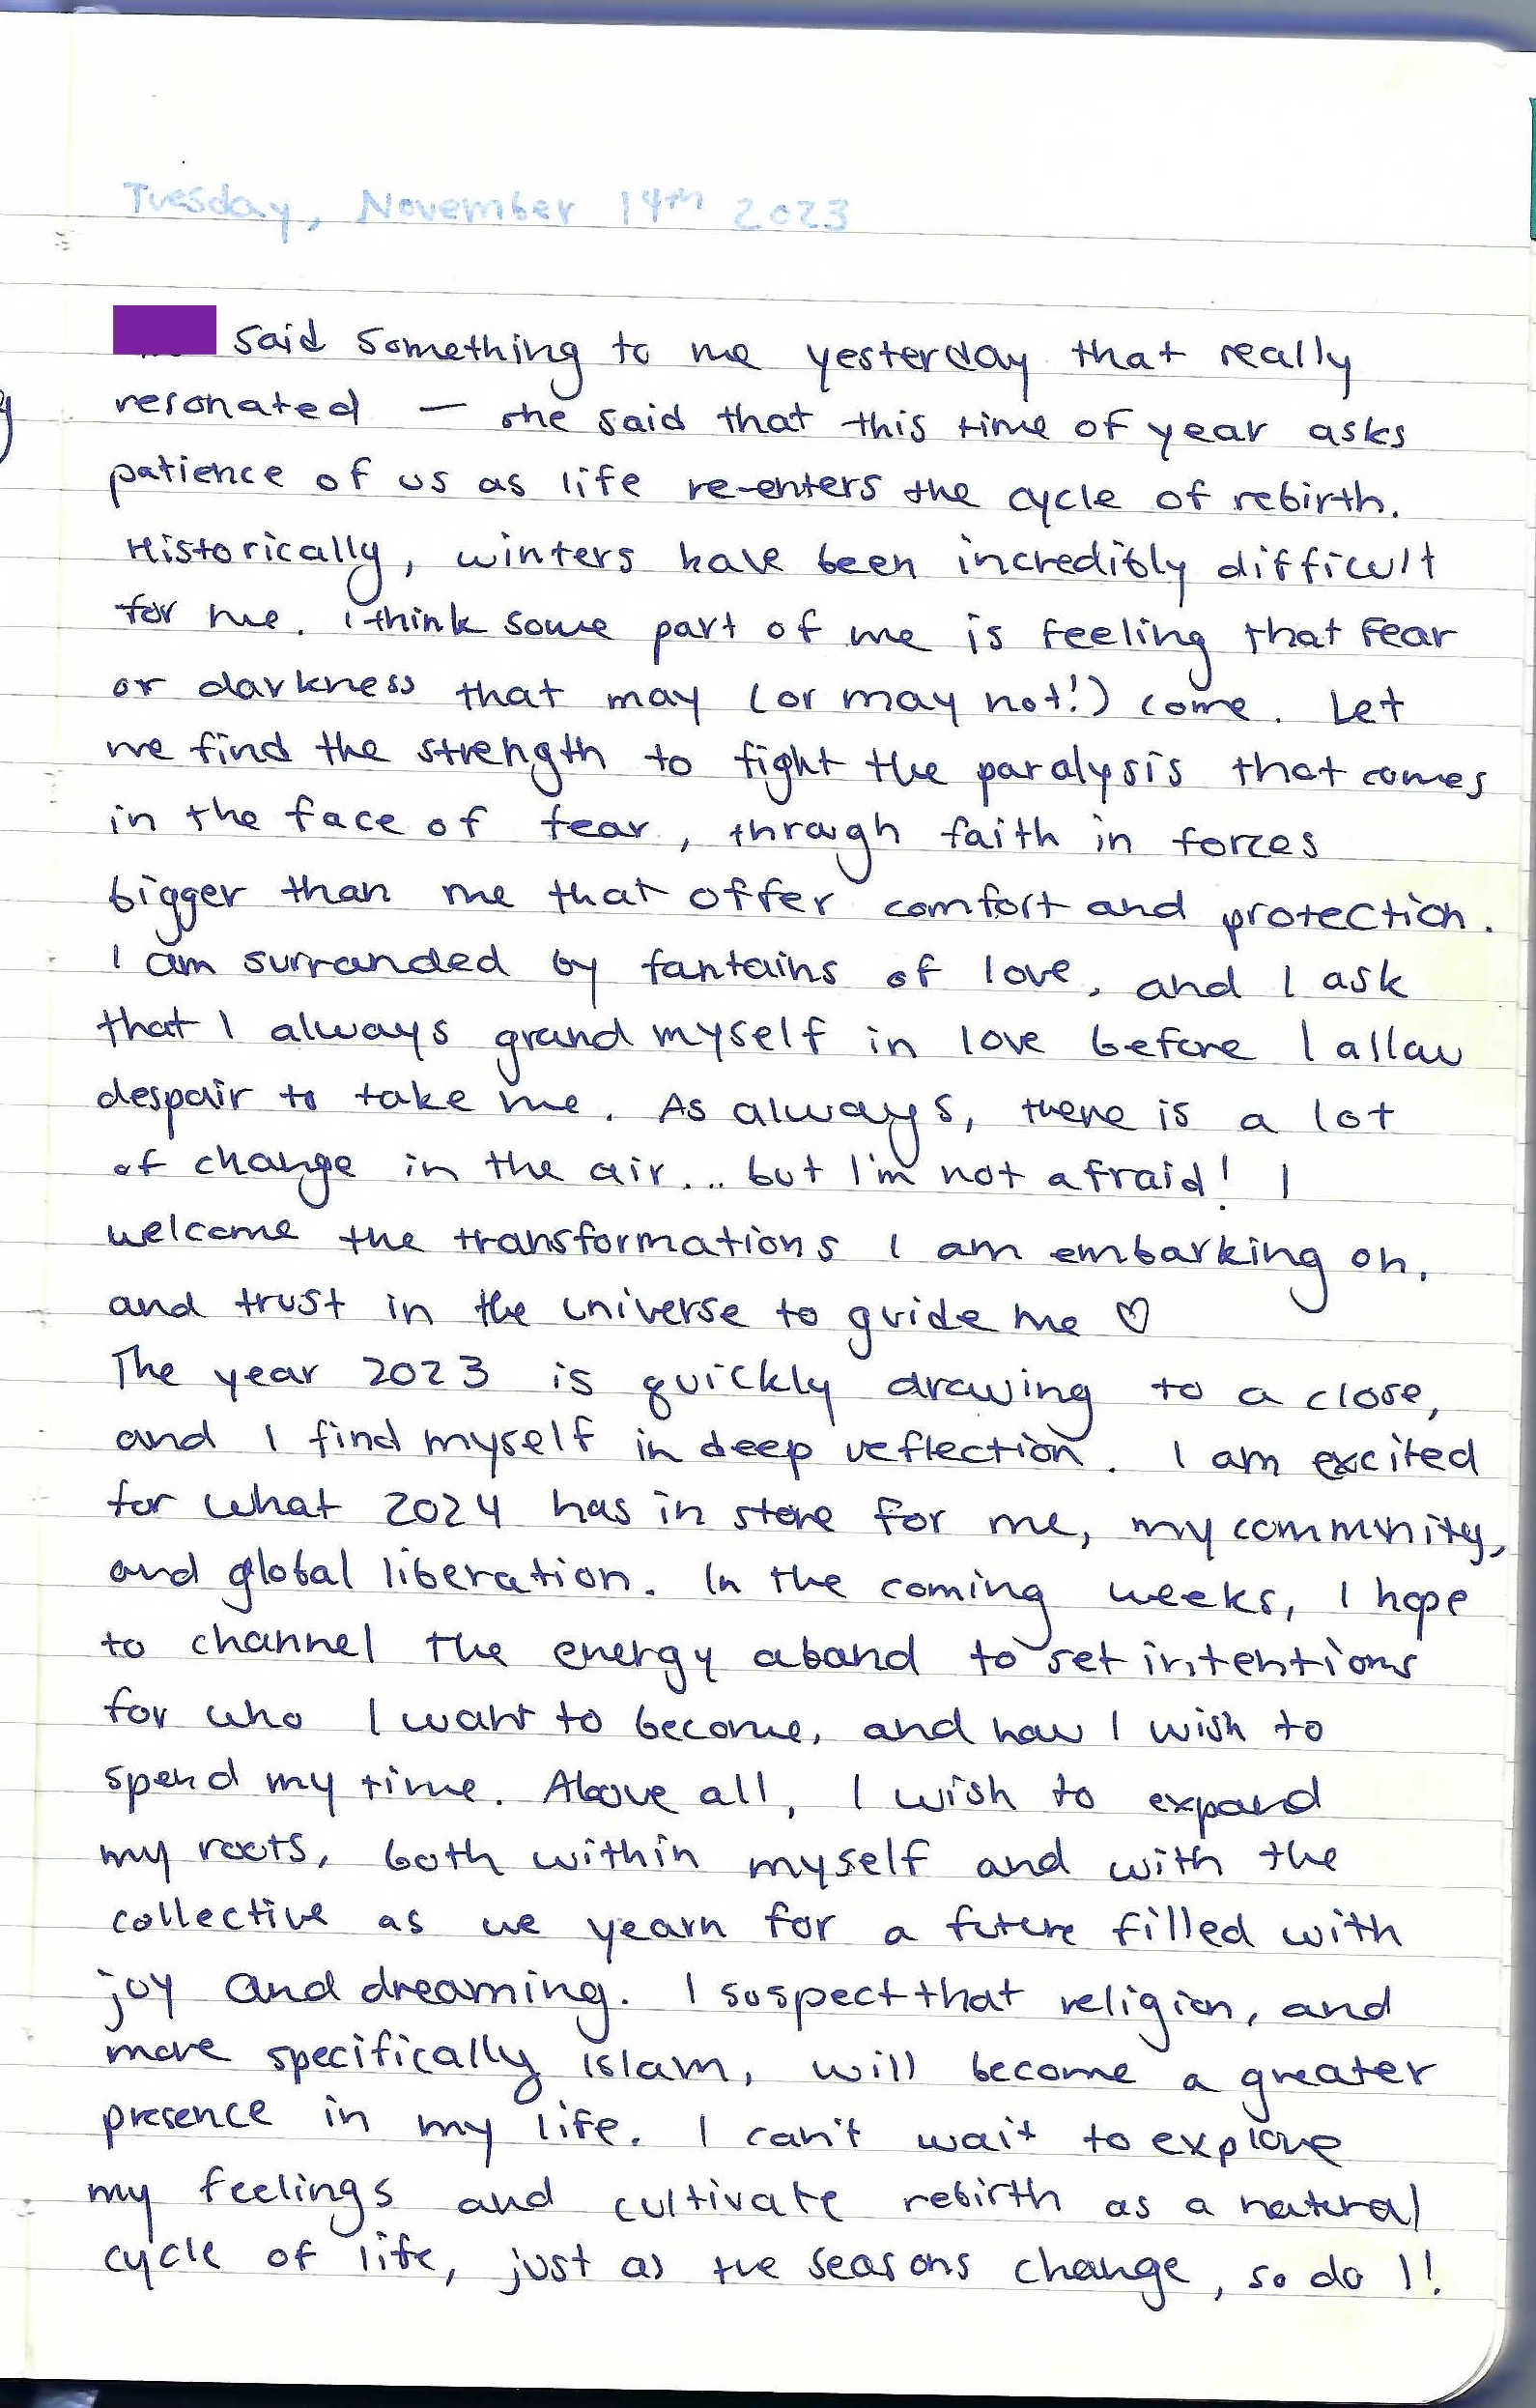 Tuesday, November 14th 2023
said something to me yesterday that really
resonated — she said that this time of year asks
patience of us as life re-enters the cycle of rebirth.
Historically, winters have been incredibly difficult
for me. I think some part of me is feeling that fear
or darkness that may (or may not!) come. Let
me find the strength to fight the paralysis that comes
in the face of fear, through faith in forces
bigger than me that offer comfort and protection.
I am surrounded by fountains of love, and I ask
that I always ground myself in love before I allow
despair to take me. As always, there is a lot
of change in the air... but I'm not afraid! I
welcome the transformations I am embarking on,
and trust in the universe to guide me ♡
The year 2023 is quickly drawing to a close,
and I find myself in deep reflection. I am excited
for what 2024 has in store for me, my community,
and global liberation. In the coming weeks, I hope
to channel the energy abound to set intentions
for who I want to become, and how I wish to
spend my time. Above all, I wish to expand
my roots, both within myself and with the
collective as we yearn for a future filled with
joy and dreaming. I suspect that religion, and
more specifically Islam, will become a greater
presence in my life. I can't wait to explore
my feelings and cultivate rebirth as a natural
cycle of life, just as the seasons change, so do I!